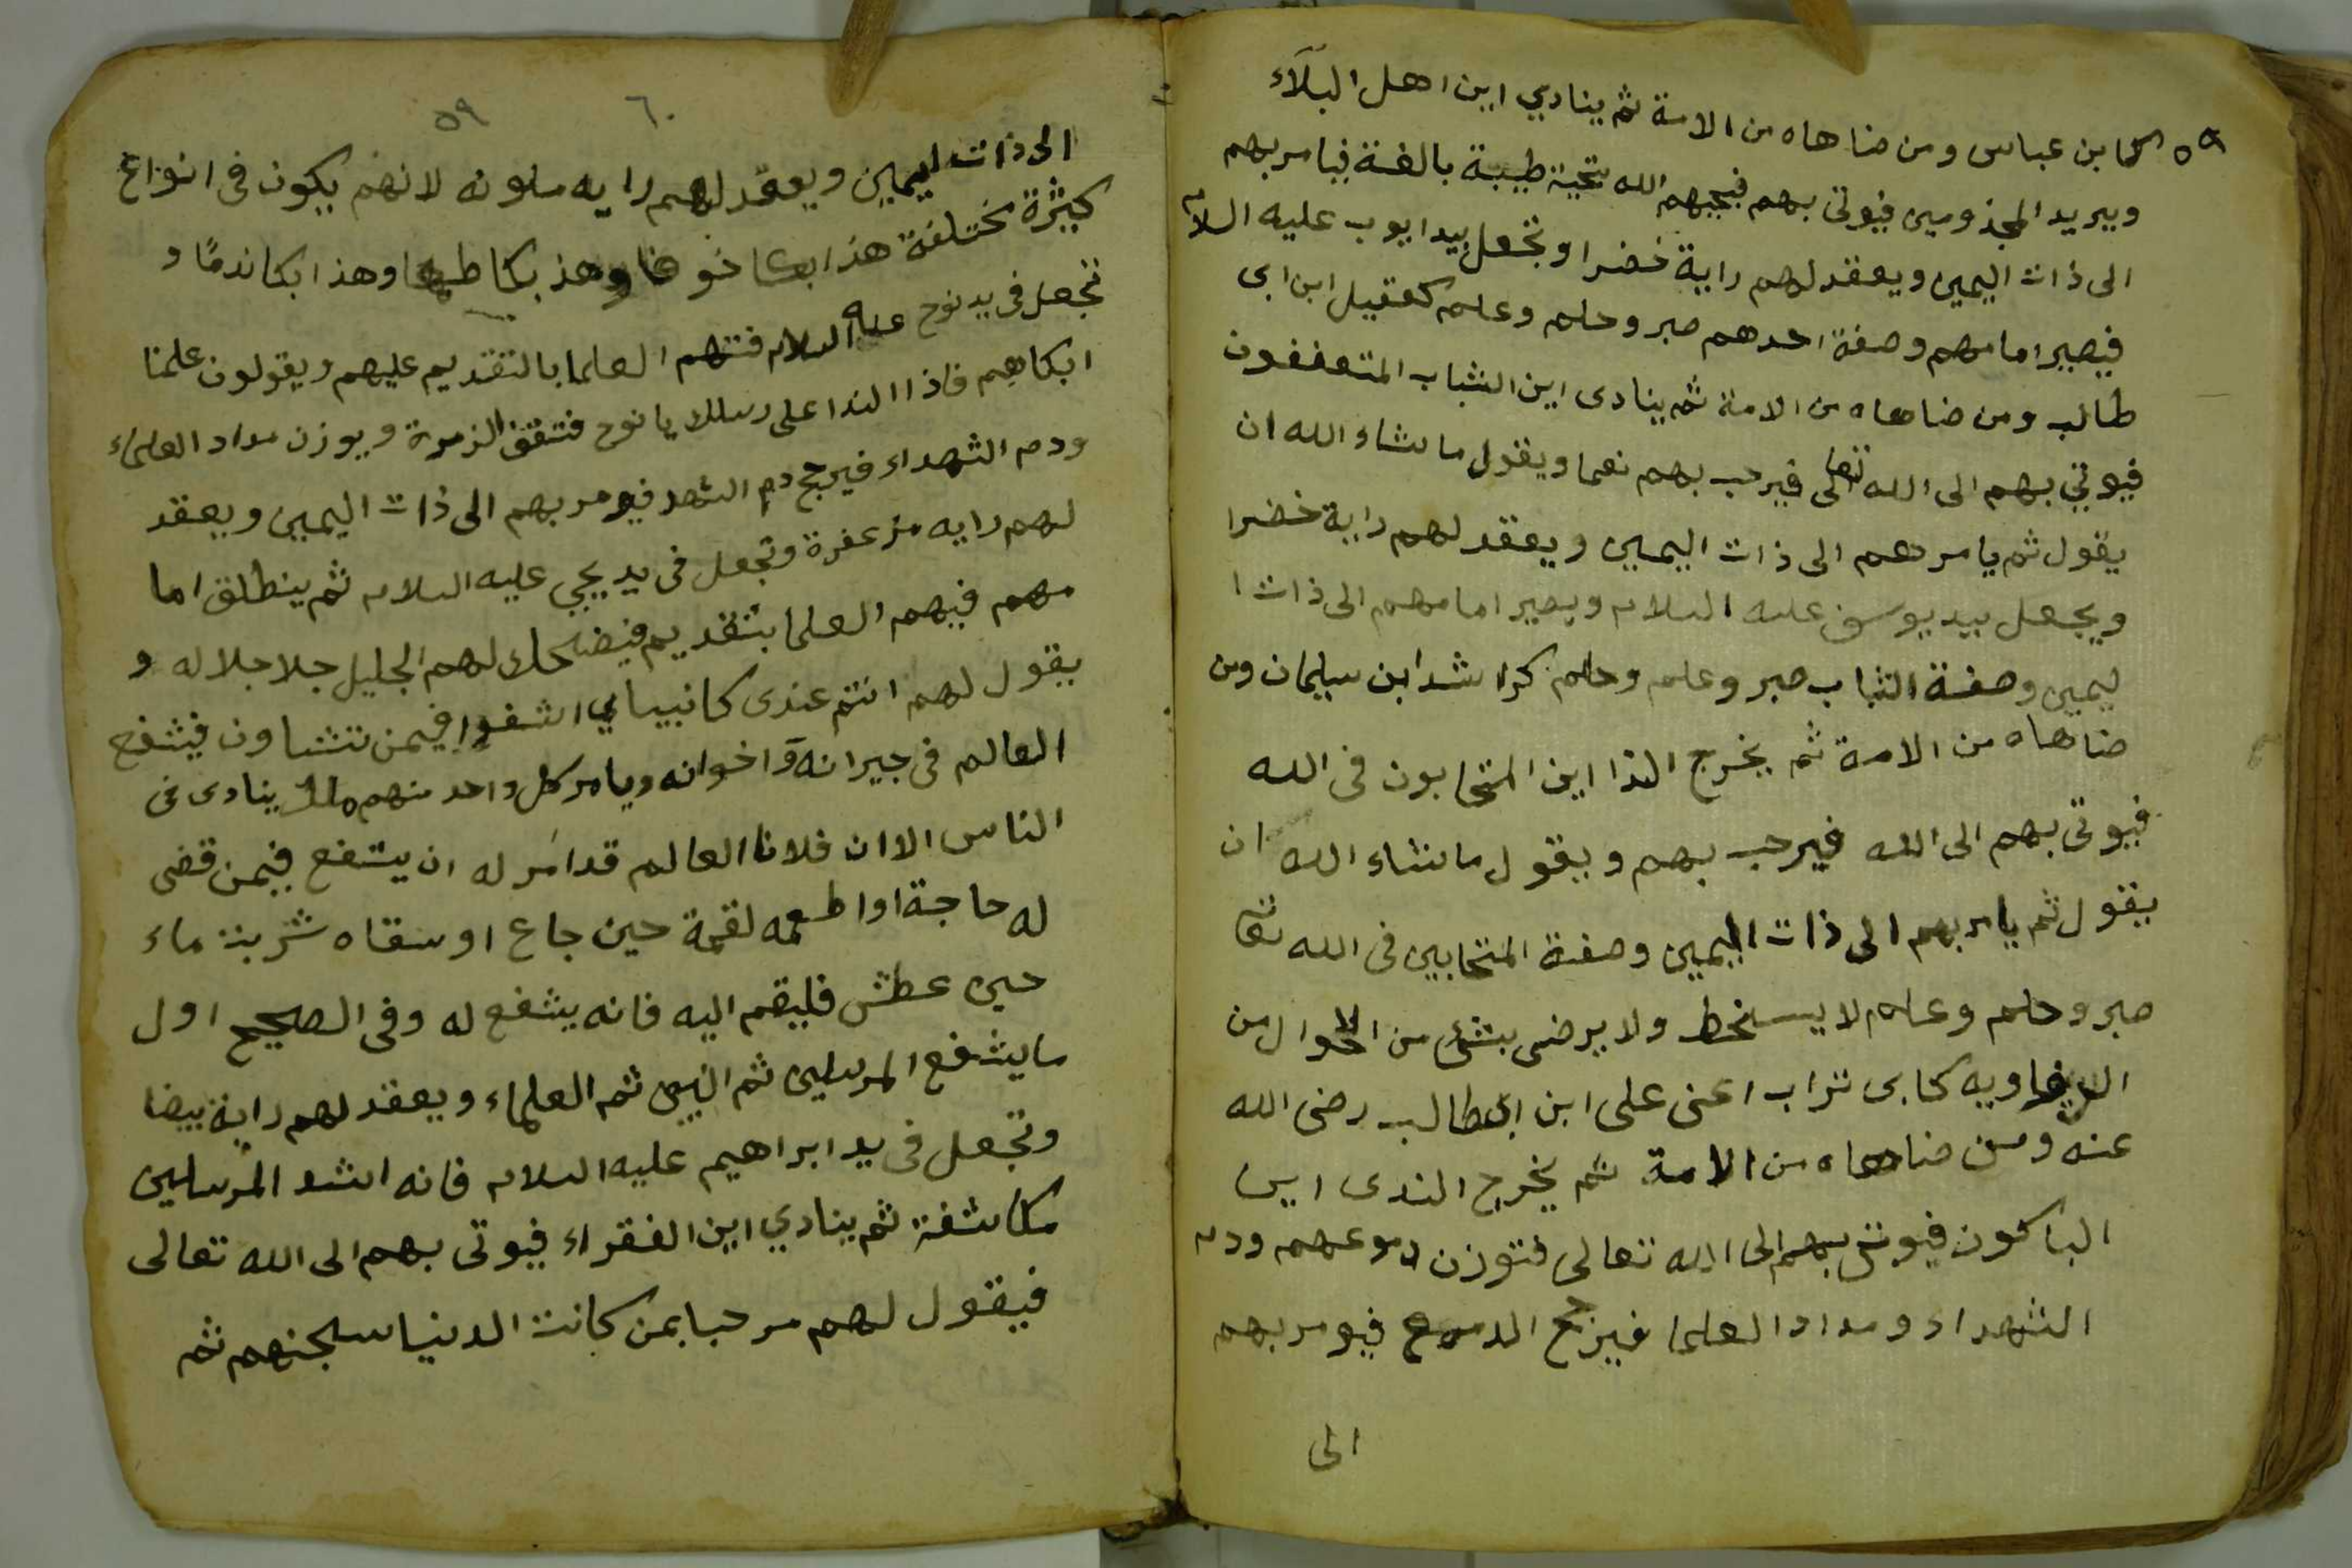 ٥٩
كابن عباس ومن ضاهاه من الامة ثم ينادي اين اهل البلآء
ويريد المجذومين فيوتى بهم فيحيهم الله بتحية طيبة بالغة فيامر بهم
الى ذات اليمين ويعقد لهم راية خضرا وتجعل بيد ايوب عليه السلام
فيصير امامهم وصفة احدهم صبر وحلم وعلم كعقيل ابن ابى
طالب ومن ضاهاه من الامة ثم ينادى اين الشباب المتعففون
فيوتي بهم الى الله تعالى فيرحب بهم نعما ويقول ماشاء الله ان
يقول ثم يامر بهم الى ذات اليمين ويعقد لهم راية خضرا
ويجعل بيد يوسف عليه السلام ويصير امامهم الى ذات ا
ليمين وصفة الشباب صبر وعلم وحلم كراشد ابن سليمان ومن
ضاهاه من الامة ثم يخرج الندا اين المتحابون فى الله
فيوتى بهم الى الله فيرحب بهم ويقول ماشاء الله ان
يقول ثم يامر بهم الى ذات اليمين وصفة المتحابين فى الله تعا
صبر وحلم وعلم لا يسخط ولا يرضى بشئ من الاحوال من
كابى تراب اعنى على ابن ابى طالب رضى الله
عنه ومن ضاهاه من الامة ثم يخرج الندى اين
الباكون فيوتى بهم الى الله تعالى فتوزن دموعهم ودم
الشهداء ومداد العلما فيرجح الدموع فيومر بهم
الى
٦٠ ٥٩
الى ذات اليمين ويعقد لهم رايه ملونه لانهم يكون فى انواع
كثيرة مختلفة هذا بكا خوفا وهذ بكا طمعا وهذا بكا ندمًا و
تجعل فى يد نوح عليه السلام فتهم العلما بالتقديم عليهم ويقولون علمنا
ابكاهم فاذا الندا على رسلك يا نوح فتقف الزمرة ويوزن مداد العلماء
ودم الشهداء فيرجح دم الشهد فيومر بهم الى ذات اليمين ويعقد
لهم رايه مزعفرة وتجعل فى يد يحيى عليه السلام ثم ينطلق اما
مهم فيهم العلما بتقديم فيضحك لهم الجليل جلا جلاله و
يقول لهم انتم عندى كانبياي اشفوا فيمن تشاون فيشفع
العالم فى جيرانه واخوانه ويامر كل واحد منهم ملك ينادى فى
الناس الا ان فلانا العالم قد امر له ان يشفع فيمن قضى
له حاجة او اطعمه لقمة حين جاع او سقاه شربت ماء
حين عطش فليقم اليه فانه يشفع له وفى الصحيح اول
ما يشفع المرسلين ثم النبين ثم العلماء ويعقد لهم راية بيضا
وتجعل فى يد ابراهيم عليه السلام فانه اشد المرسلين
مكاشفة ثم ينادي اين الفقراء فيوتى بهم الى الله تعالى
فيقول لهم مرحبا بمن كانت الدنيا سجنهم ثم